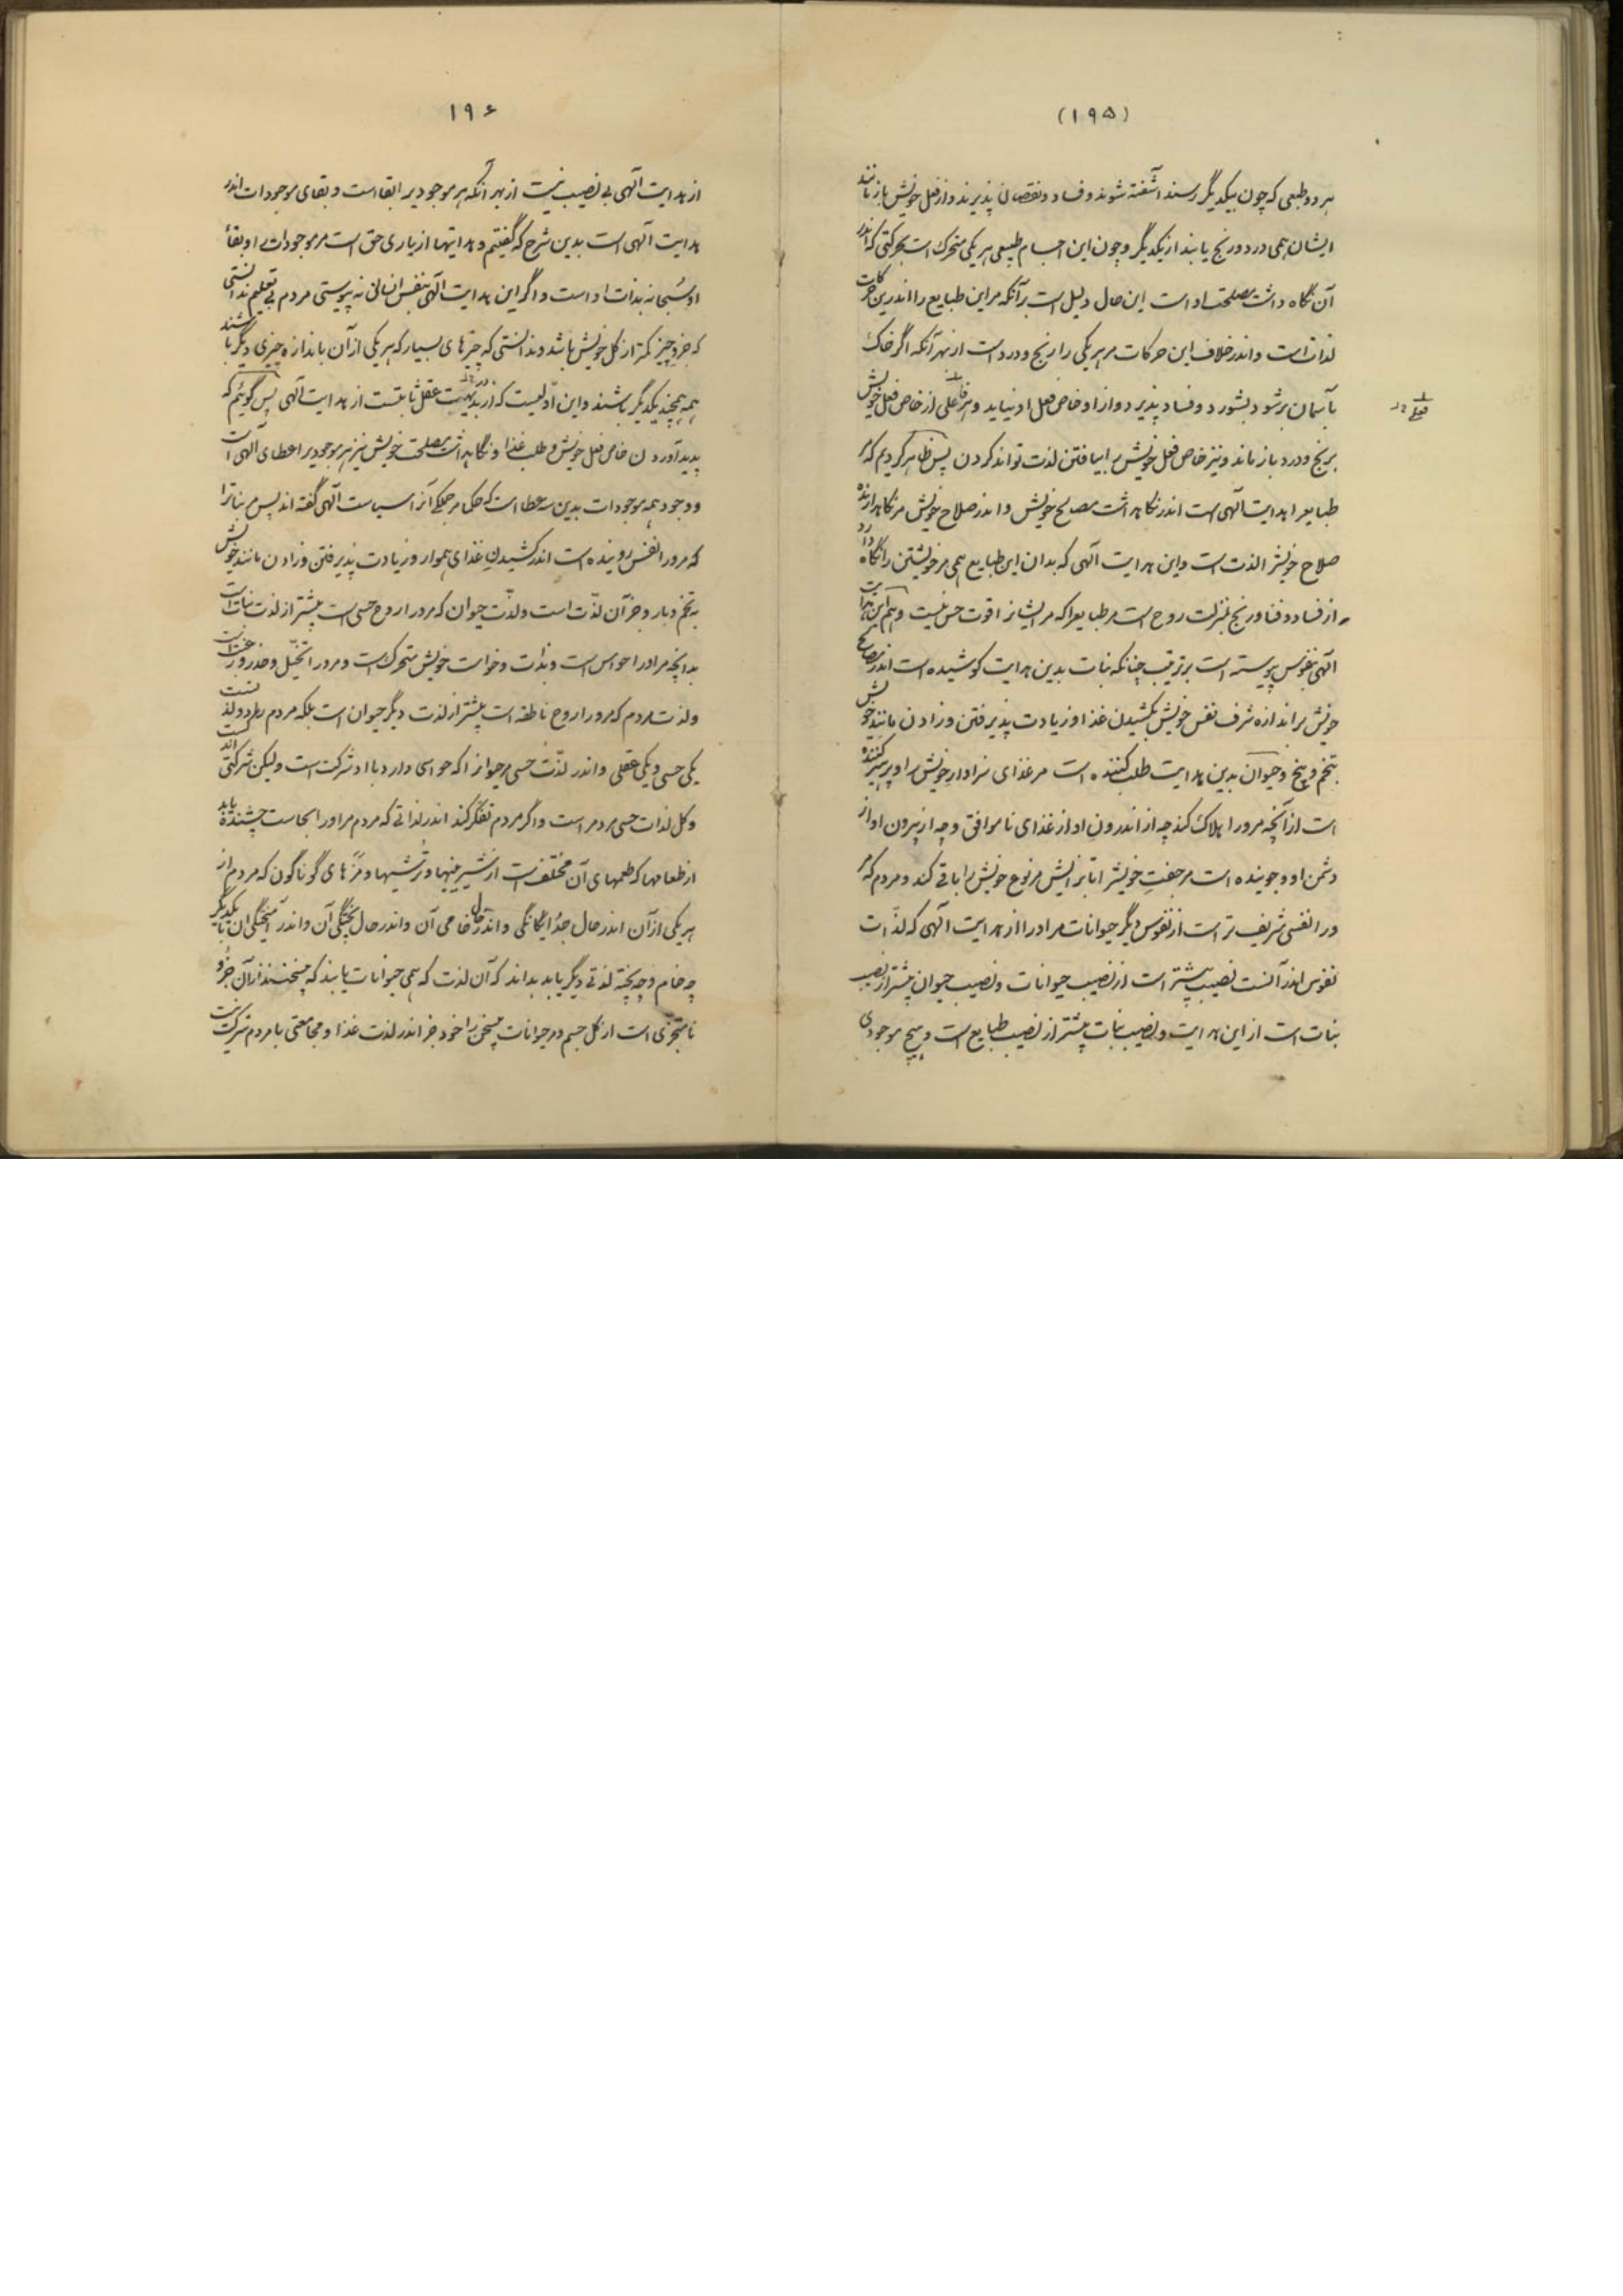 (۱۹۵)
هر دو طبعی که چون بیکدیگر رسند آشفته شوند و فساد و نقصان پذیرند و از فعل خویش باز مانند
ایشان همی درد و رنج یابند از یکدیگر و چون این اجسام طبیعی هر یکی متحرک است بحرکتی که اندر
آن نگاه داشت مصلحت او است این حال دلیل است بر آنکه مر این طبایع را اندرین حرکات
لذات است و اندر خلاف این حرکات مر هر یکی را رنج و درد است از بهر آنکه اگر خاک
بآسمان بر شود بشورد و فساد پذیرد و از او خاص فعل او نیاید و هر فاعلی از خاص فعل خویش
برنج و درد باز ماند و نیز خاص فعل خویش را بیافتن لذت تواند کردن پس ظاهر کردیم که مر
طبایع را هدایت آلهی است اندر نگاهداشت مصالح خویش و اندر صلاح خویش مر نگاهدارنده
صلاح خویش را لذت است و این هدایت آلهی که بدان این طبایع همی مر خویشتن را نگاه دارد
از فساد و فنا و رنج بمنزلت روح است مر طبایع را که مر ایشانرا قوت حس نیست و هم این هدایت
آلهی بنفوس پیوسته است بر ترتیب چنانکه نبات بدین هدایت کوشیده است اندر مصالح
خویش بر اندازه شرف نفس خویش بکشیدن غذا و زیادت پذیرفتن و زادن مانند خویش
بتخم و بیخ و حیوان بدین هدایت طلب کننده است مر غذای سزاوار خویش را و پرهیز کننده
است از آنچه مرورا هلاک کند چه از اندرون او از غذای ناموافق و چه از بیرون او از
دشمن او و جوینده است مر جفت خویش را تا بزایش مر نوع خویش را باقی کند و مردم که مر
ورا نفسی شریف تر است از نفوس دیگر حیوانات مر او را از هدایت آلهی که لذّات
نفوس اندر آنست نصیب بیشتر است از نصیب حیوانات و نصیب حیوان بیشتر از نصیب
نبات است از این هدایت و نصیب نبات بیشتر از نصیب طبایع است و هیچ موجودی
۱۹۶
از هدایت آلهی بی نصیب نیست از بهر آنکه هر موجودیرا بقا است و بقای موجودات اندر
هدایت آلهی است بدین شرح که گفتیم و هدایتها از باری حق است مر موجودات را و بقاء
او سُبحانه بذات او است و اگر این هدایت آلهی بنفس انسانی نه پیوستی مردم بی تعلیم ندانستی
که جزو چیز کمتر از کل خویش باشد و ندانستی که چیزهای بسیار که هر یکی از آن باندازه چیزی دیگر باشند
همه همچند یکدیگر باشند و این اوّلیست که در بدیهت عقل ثابتست از هدایت آلهی پس گوئیم که
پدید آوردن خاص فعل خویش و طلب غذا و نگاهداشت مصلحت خویش نیز هر موجودیرا عطای آلهی است
و وجود همه موجودات بدین سه عطا است که حکما مر جملگی آنرا سیاست آلهی گفته اند پس مر نباترا
که مرورا نفس روینده است اندر کشیدن غذای هموار و زیادت پذیرفتن و زادن مانند خویش
به تخم و بار و جز آن لذّت است و لذّت حیوان که مرورا روح حسی است بیشتر از لذت نبات است
بدانچه مر او را حواس است و بذات و خواست خویش متحرک است و مرورا تخیّل و
ولذت مردم که مرورا روح ناطقه است بیشتر از لذت دیگر حیوان است بلکه مردم را دو لذتست
یکی حسی و یکی عقلی و اندر لذّت حسی مر حیوانرا که حواسی دارد با او شرکت است ولیکن شرکتی
و کل لذات حسی مردمر است و اگر مردم تفکر کند اندر لذاتی که مردم مر او را بحاست چشنده یابد
از طعامها که طعمهای آن مختلف است از شیرینیها و تُرشیها و مزّه های گوناگون که مردم از
هر یکی از آن اندر حال جدُا گانگی و اندر حال خامی آن و اندر حال پختگی آن و اندر آمیختگی آن با یکدیگر
چه خام و چه پخته لذتی دیگر یابد بداند که آن لذت که همی حیوانات یابند که بی سخنند از آن جُزو
نامتجزّی است از کل جسم و مر حیوانات بیسخن را خود جز اندر لذت غذا و مجامعتی با مردم شرکت نیست